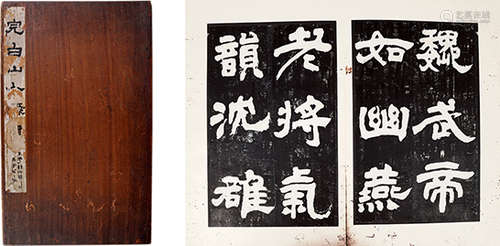 完白山人
魏武帝
如幽燕
老將氣
韻沈雄